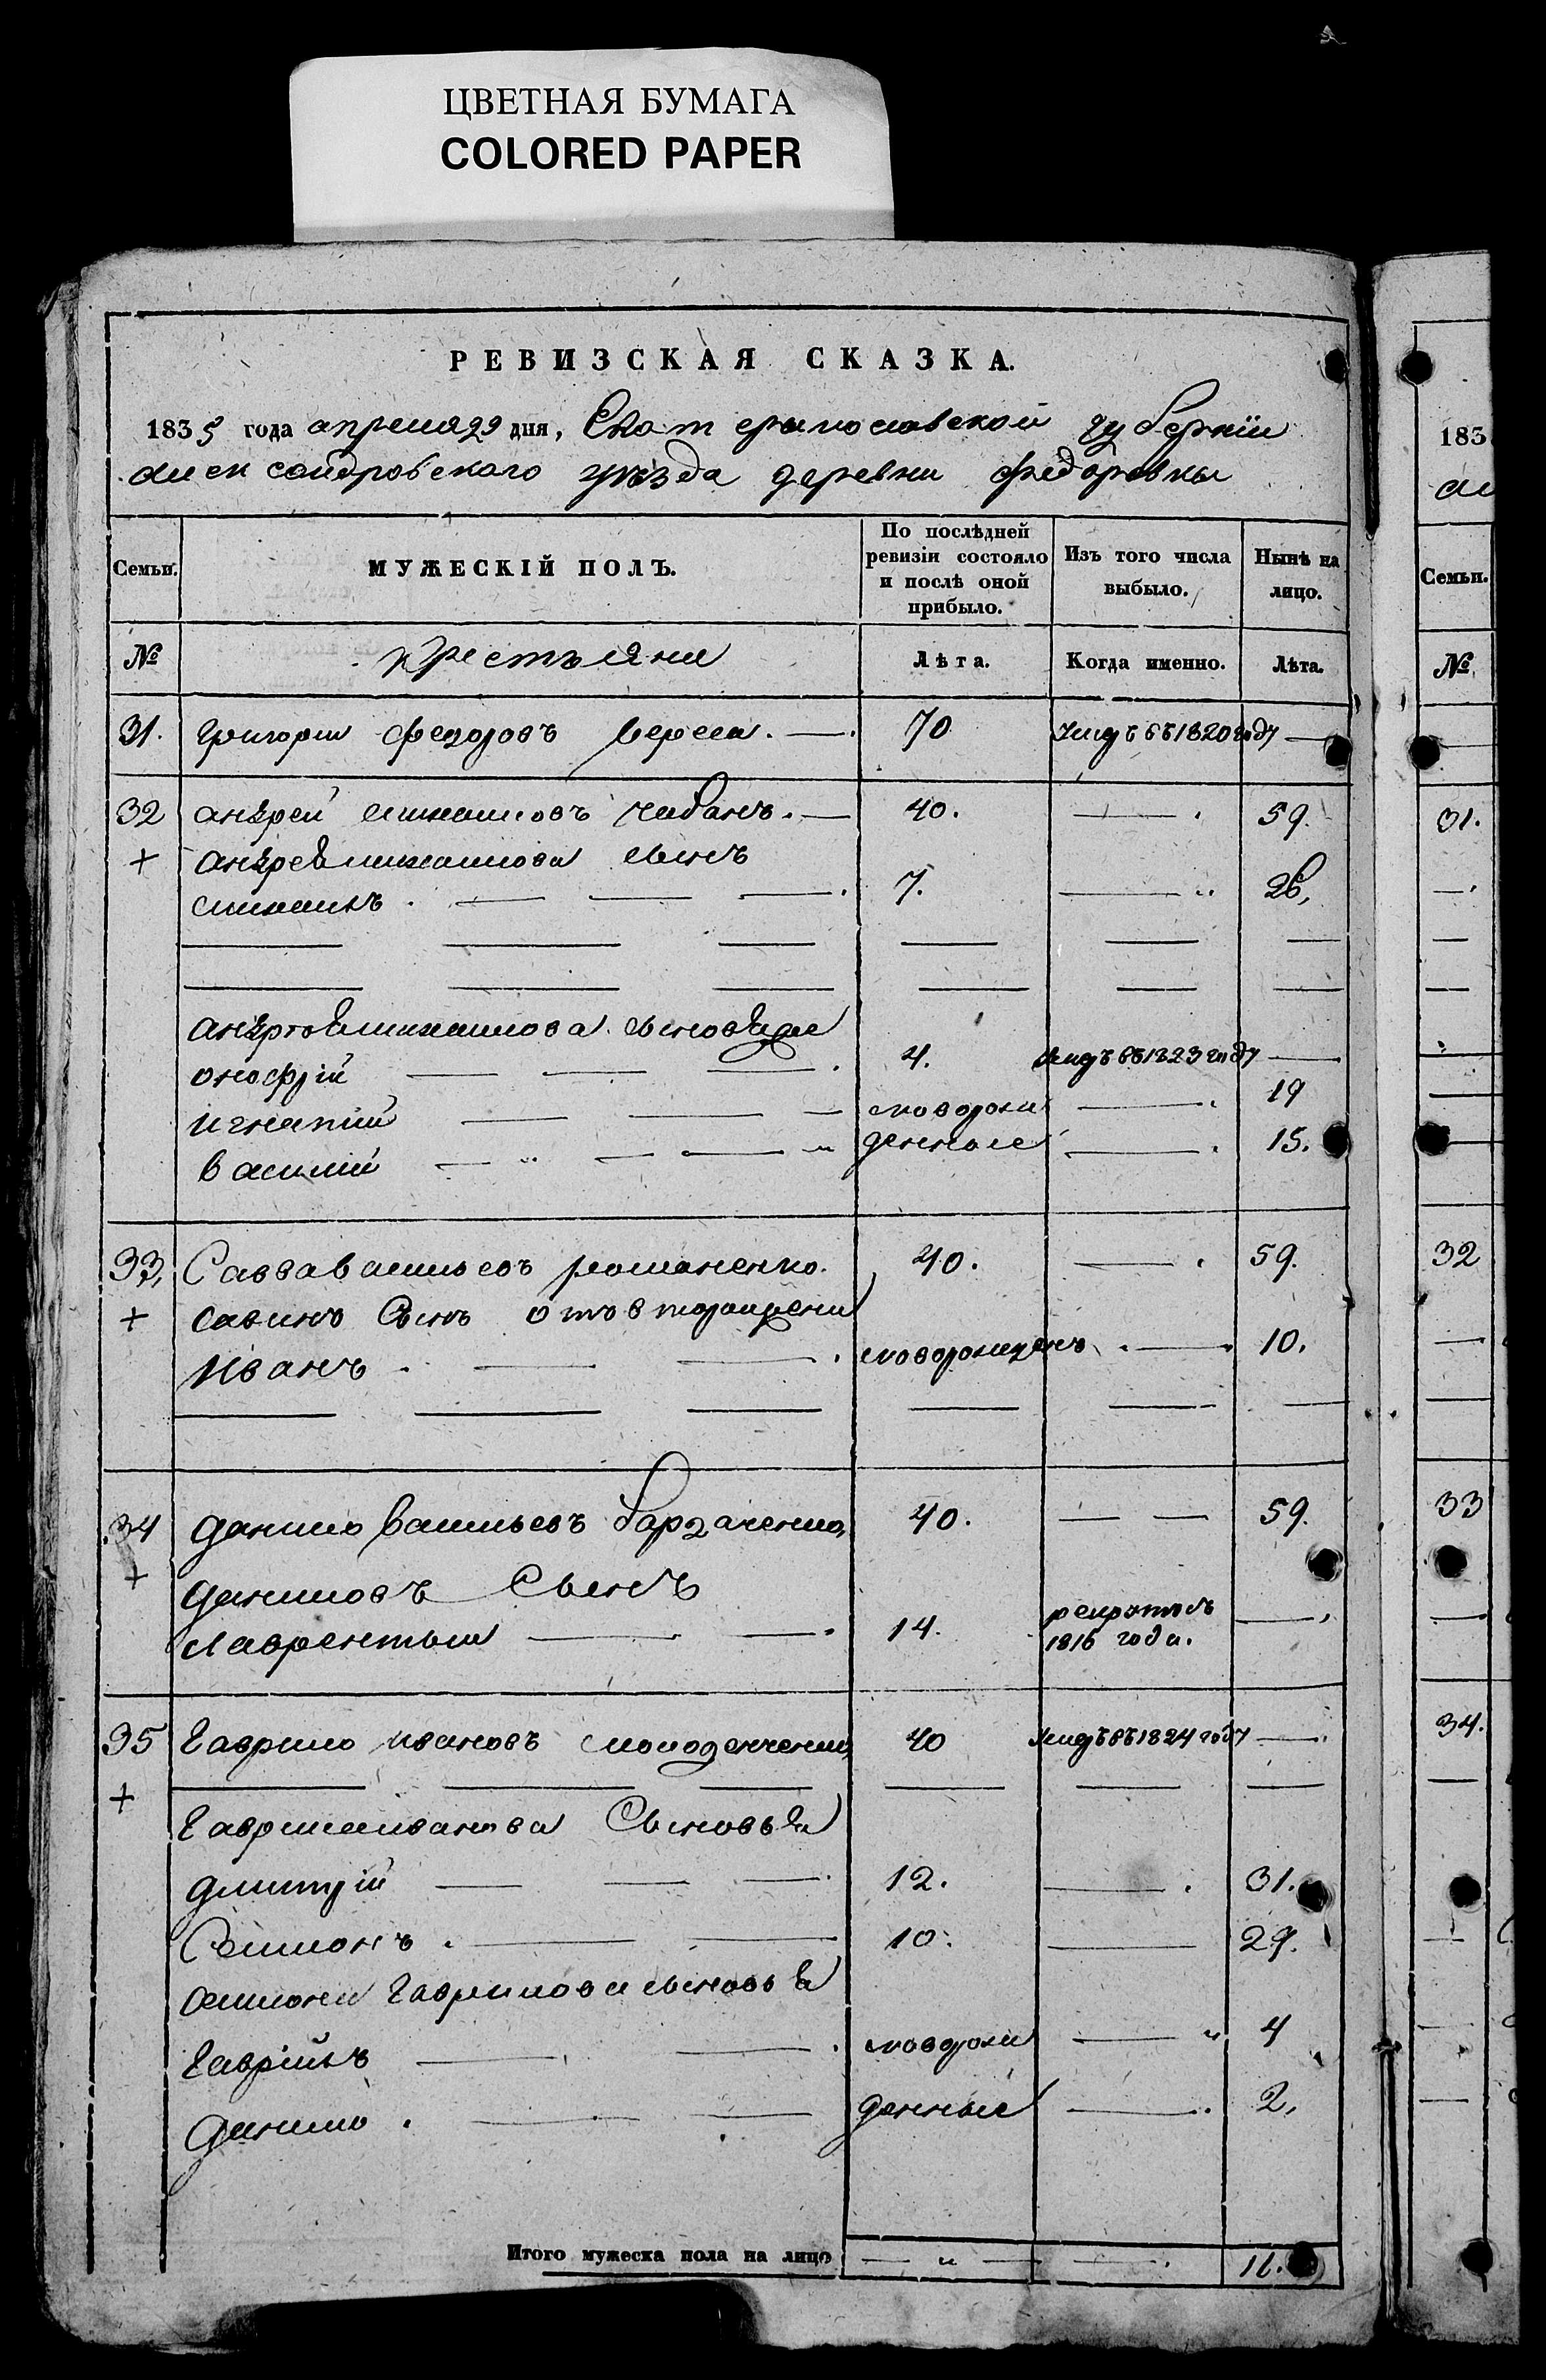 ЦВЕТНАЯ БУМАГА
COLORED PAPER
РЕВИЗСКАЯ СКАЗКА.
1835 года апреля 29 дня, Екатеринославской губернии
александровского уѣзда деревни федоровки
Семьи. МУЖЕСКІЙ ПОЛЪ. По послѣдней ревизіи состояло и послѣ оной прибыло. Изъ того числа выбыло. Нынѣ на лицо.
№ крестьяне Лѣта. Когда именно. Лѣта.
31. григорий федоровъ вереса. — 70 Умеръ въ 1820 году —
32 андрей михайловъ чабанъ. — 40. — 59.
+ андрея михайлова сынъ
михаилъ. — — — 7. — 26,
андрея михайлова сыновья
онофрій — — — 4. Умеръ въ 1823 году —
игнатий — — — новорож — 19
василий — — — денные — 15.
33, Савва васильевъ романенко. 40. — 59.
+ савинъ сынъ отъ второй жены
Иванъ. — — новорожденъ. — 10.
34 данило васильевъ барзаченко, 40. — — 59.
+ даниловъ Сынъ
лаврентый — — 14. рекрутъ 1816 года. —
35 гаврило ивановъ молоденченко, 40 Умеръ въ 1824 году —
+ гаврила иванова Сыновья
дмитрій — — — 12. — 31.
Семионъ. — — 10. — 29.
семиона гаврилова сыновья
гаврійлъ — — новорож — 4
данило. — — денные — 2,
Итого мужеска пола на лицо — — — 11.
183
Семьи.
№
31.
32
33
34.